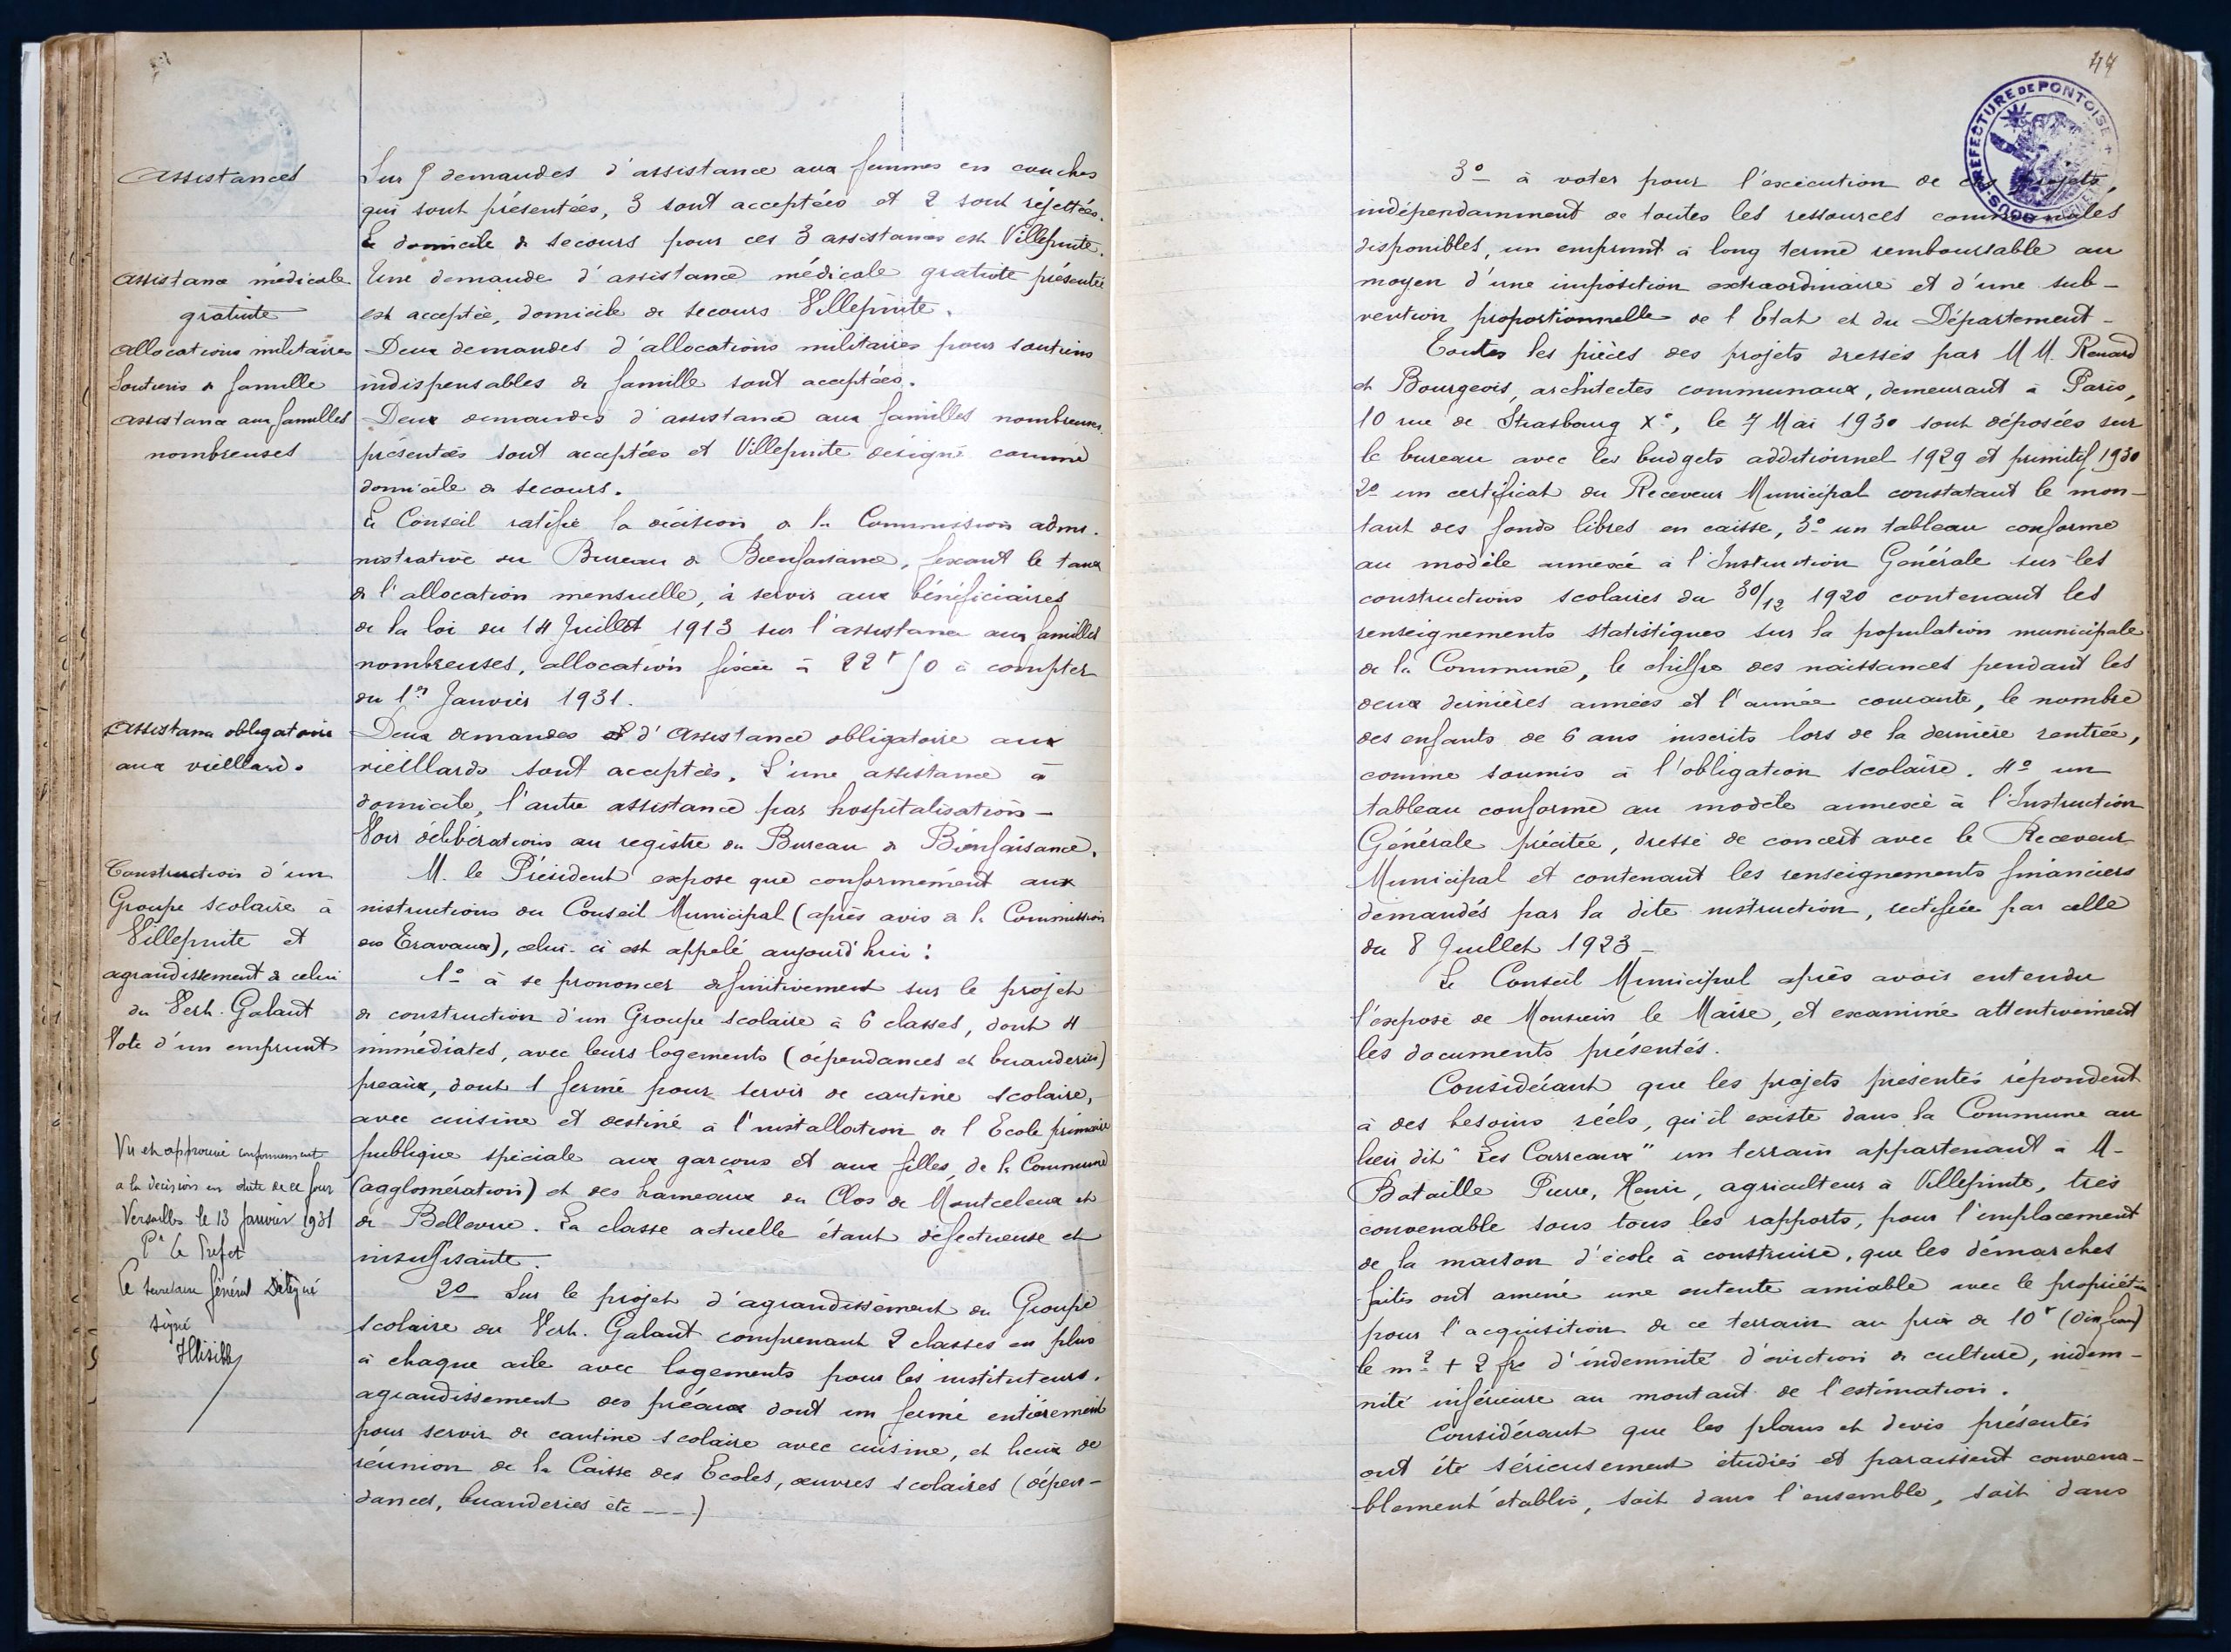 Assistances
Sur 5 demandes d'assistance aux femmes en couches
qui sont présentées, 3 sont acceptées et 2 sont rejettées.
Le domicile de secours pour ces 3 assistances est Villepinte.
Assistance médicale
gratuite
Une demande d'assistance médicale gratuite présentée
est acceptée, domicile de secours Villepinte.
Allocations militaires
Soutiens de famille
Deux demandes d'allocations militaires pour soutiens
indispensables de famille sont acceptées.
Assistance aux familles
nombreuses
Deux demandes d'assistance aux familles nombreuses
présentées sont acceptées et Villepinte désigné comme
domicile de secours.
Le Conseil ratifie la décision de la Commission admi-
nistrative du Bureau de Bienfaisance, fixant le taux
de l'allocation mensuelle, à servir aux bénéficiaires
de la loi du 14 Juillet 1913 sur l'assistance aux familles
nombreuses, allocation fixée à 22f 50 à compter
du 1er Janvier 1931.
Assistance obligatoire
aux vieillards
Deux demandes d'Assistance obligatoire aux
vieillards sont acceptées. L'une assistance à
domicile, l'autre assistance par hospitalisation -
Voir délibérations au registre du Bureau de Bienfaisance.
Construction d'un
Groupe scolaire à
Villepinte et
agrandissement de celui
du Vert-Galant
Vote d'un emprunt
M. le Président expose que conformément aux
instructions du Conseil Municipal (après avis de la Commission
des Travaux), celui-ci est appelé aujourd'hui :
1° à se prononcer définitivement sur le projet
de construction d'un Groupe scolaire à 6 classes, dont 4
immédiates, avec leurs logements (dépendances et buanderies)
preaux, dont 1 fermé pour servir de cantine scolaire,
avec cuisine et destiné à l'installation de l'Ecole primaire
publique spéciale aux garçons et aux filles, de la Commune
(agglomération) et des hameaux du Clos de Montceleux et
de Bellevue. La classe actuelle étant défectueuse et
insuffisante.
2° Sur le projet d'agrandissement du Groupe
scolaire du Vert-Galant comprenant 2 classes en plus
à chaque aile avec logements pour les instituteurs,
agrandissement des préaux dont un fermé entièrement
pour servir de cantine scolaire avec cuisine, et lieux de
réunion de la Caisse des Ecoles, œuvres scolaires (dépen-
dances, buanderies etc ----)
Vu et approuvé conformément
à la décision en date de ce jour
Versailles le 13 Janvier 1931
Pr le Préfet
Le secrétaire Général Délégué
signé
Illisible
44
SOUS-PREFECTURE DE PONTOISE
3° à voter pour l'exécution de ces projets,
indépendamment de toutes les ressources communales
disponibles, un emprunt à long terme remboursable au
moyen d'une imposition extraordinaire et d'une sub-
vention proportionnelle de l'Etat et du Département -
Toutes les pièces des projets dressés par M M. Renard
et Bourgeois, architectes communaux, demeurant à Paris,
10 rue de Strasbourg Xe, le 7 Mai 1930 sont déposées sur
le bureau avec les budgets additionnel 1929 et primitif 1930
2° un certificat du Receveur Municipal constatant le mon-
tant des fonds libres en caisse, 3° un tableau conforme
au modèle annexé à l'Instruction Générale sur les
constructions scolaires du 30/12 1920 contenant les
renseignements statistiques sur la population municipale
de la Commune, le chiffre des naissances pendant les
deux dernières années et l'année courante, le nombre
des enfants de 6 ans inscrits lors de la dernière rentrée,
comme soumis à l'obligation scolaire. 4° un
tableau conforme au modèle annexé à l'Instruction
Générale précitée, dressé de concert avec le Receveur
Municipal et contenant les renseignements financiers
demandés par la dite instruction, rectifiée par celle
du 8 Juillet 1923 -
Le Conseil Municipal après avoir entendu
l'exposé de Monsieur le Maire, et examiné attentivement
les documents présentés.
Considérant que les projets présentés répondent
à des besoins réels, qu'il existe dans la Commune au
lieu dit "Les Carreaux" un terrain appartenant à M-
Bataille Pierre, Henri, agriculteur à Villepinte, très
convenable sous tous les rapports, pour l'emplacement
de la maison d'école à construire, que les démarches
faites ont amené une entente amiable avec le propriétaire
pour l'acquisition de ce terrain au prix de 10f (dix francs)
le m2 + 2 frs d'indemnité d'éviction de culture, indem-
nité inférieure au montant de l'estimation.
Considérant que les plans et devis présentés
ont été sérieusement étudiés et paraissent convena-
blement établis, soit dans l'ensemble, soit dans